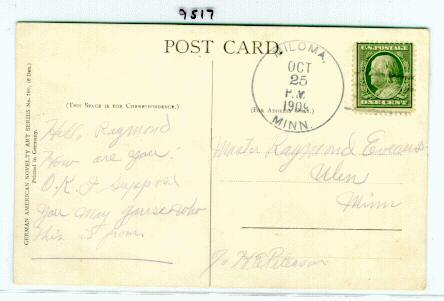 9517
POST CARD.
MILOMA,
OCT
25
P.M.
1909
MINN.
U.S. POSTAGE
ONE CENT
(THIS SPACE IS FOR CORRESPONDENCE.)
(FOR ADDRESS ONLY.)
GERMAN AMERICAN NOVELTY ART SERIES No.
Printed in Germany.
Hello Raymond
How are you?
O.K. I suppose
You may guess who
this is from
Master Raymond Evans
Ulen
Minn
℅ H E Peterson